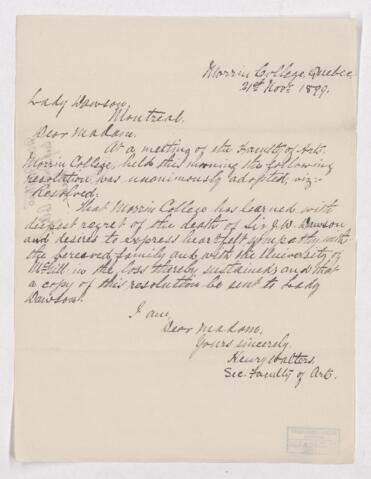 Morrin College, Quebec,
21st Novr 1899.
Lady Dawson,
Montreal.
Dear Madam,
At a meeting of the Faculty of Arts,
Morrin College, held this morning the following
resolution was unanimously adopted, viz:-
Resolved:
That Morrin College has learned with
deepest regret of the death of Sir J. W. Dawson
and desires to express heartfelt sympathy with
the bereaved family and with the University of
McGill in the loss thereby sustained; and that
a copy of this resolution be sent to Lady
Dawson.
I am,
Dear Madam,
Yours sincerely,
Henry Walters,
Sec. Faculty of Arts.